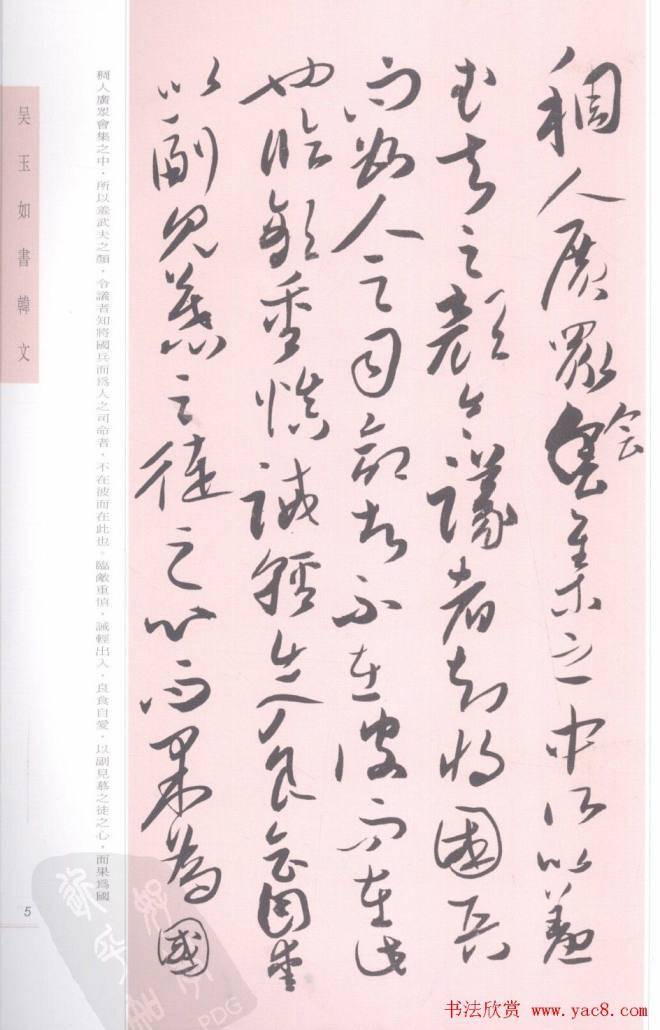 稠人廣眾會集之中所以羞
会
武夫之顏令議者知將國兵
而為人之司命者不在彼而在此
也臨敵重慎誡輕出入良食自愛
以副見慕之徒之心而果為國
稠人廣眾會集之中，所以羞武夫之顏，令議者知將國兵而爲人之司命者，不在彼而在此也。臨敵重慎，誡輕出入，良食自愛，以副見慕之徒之心，而果爲國
吴玉如書韓文
5
PDG
书法欣赏 www.yac8.com